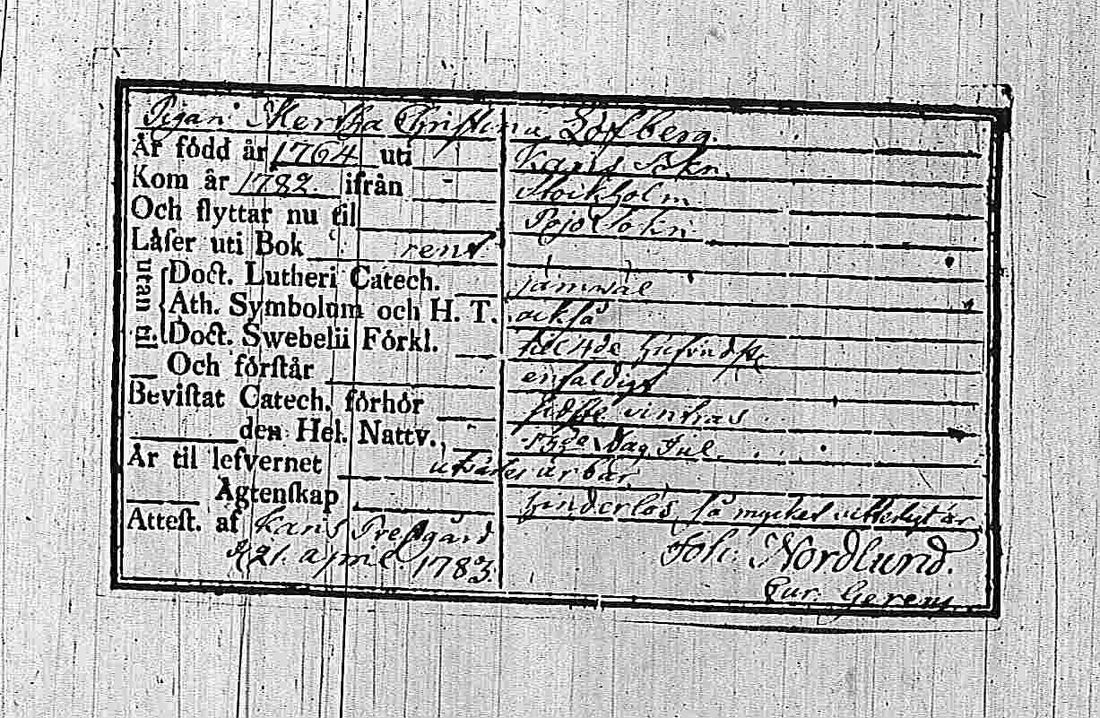 Pigan Mertha Christina Löfberg.
Är född år 1764 uti Karis Skn.
Kom år 1782. ifrån Stockholm
Och flyttar nu til Pojo Sokn
Låser uti Bok rent
utan til
Doct. Lutheri Catech. jämwäl
Ath. Symbolum och H. T. också
Doct. Swebelii Förkl. til 4de
Och förstår enfaldigt
Beviſtat Catech. förhör sidste vintras
den Hel. Nattv. Dag Jul.
Är til lefvernet ärbar
Ägtenſkap hinderlös, så mycket vitterligt är
Atteſt. af Karis Prestgård Joh. Nordlund.
d 21. april 1783. Cur. Gerens